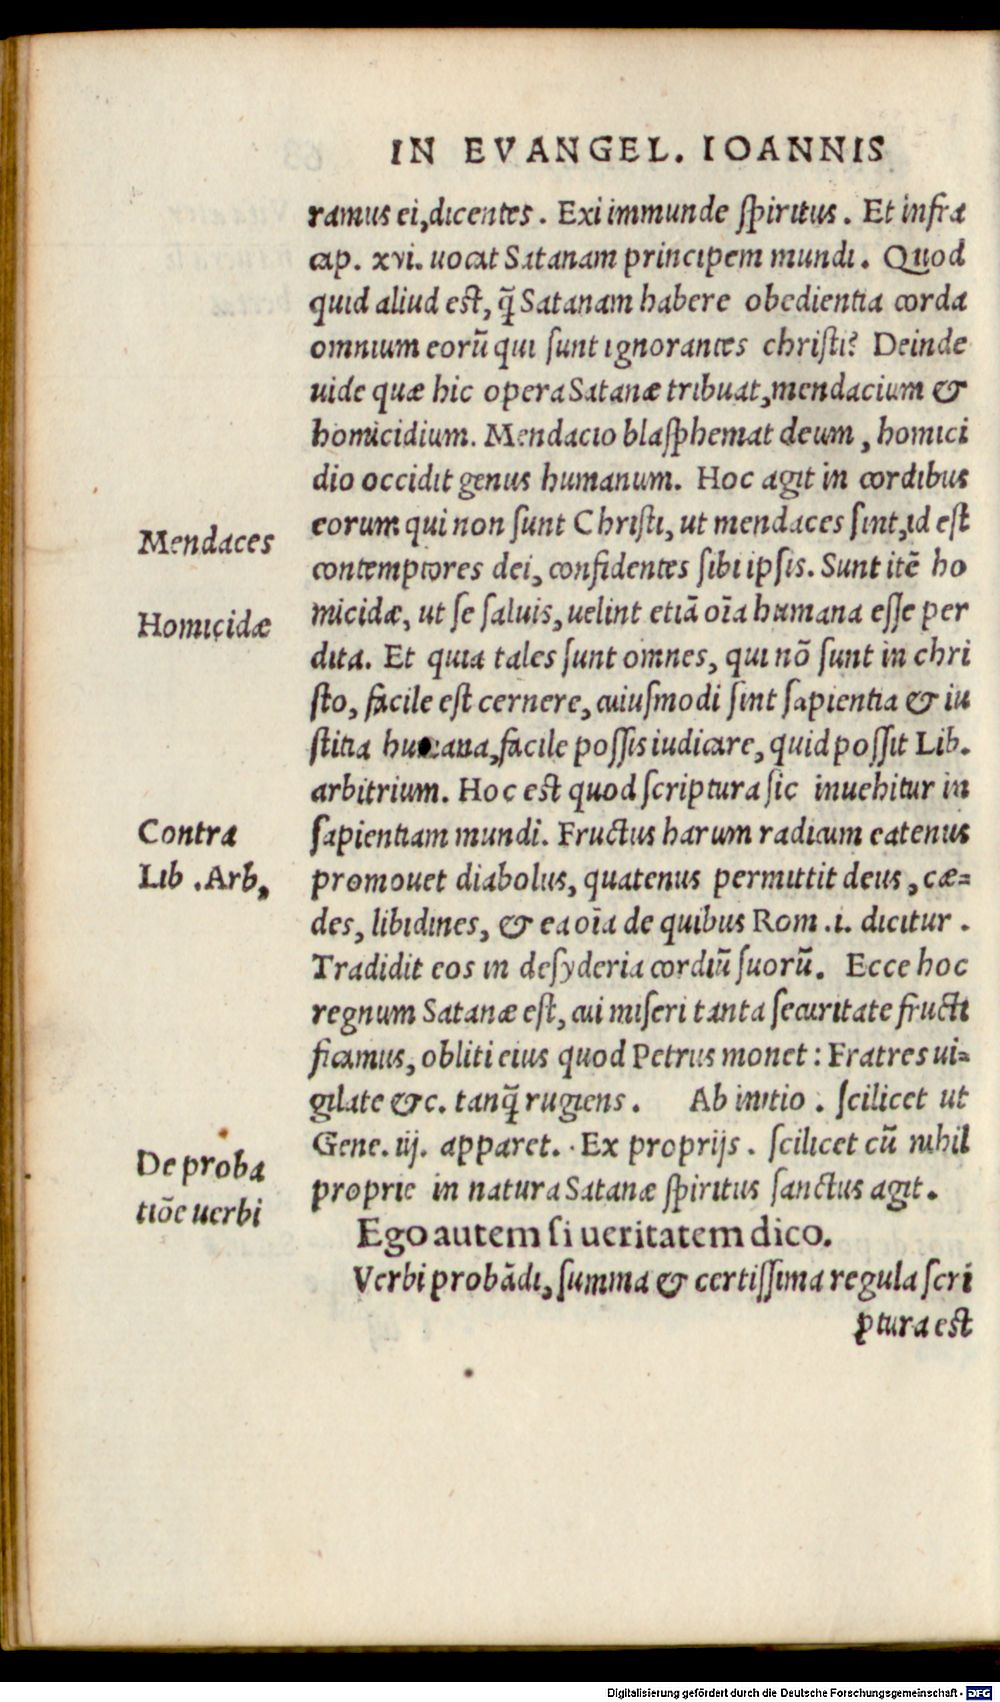 IN EVANGEL. IOANNIS
ramus ei, dicentes. Exi immunde spiritus. Et infra
cap. xvi. uocat Satanam principem mundi. Quod
quid aliud est, q̃ Satanam habere obedientia corda
omnium eorũ qui sunt ignorantes christi? Deinde
uide quæ hic opera Satanæ tribuat, mendacium &
homicidium. Mendacio blasphemat deum, homici
dio occidit genus humanum. Hoc agit in cordibus
eorum qui non sunt Christi, ut mendaces sint, id est
Mendaces
contemptores dei, confidentes sibi ipsis. Sunt itē ho
Homicidæ
micidæ, ut se saluis, uelint etiā oīa humana esse per
dita. Et quia tales sunt omnes, qui nō sunt in chri
sto, facile est cernere, cuiusmodi sint sapientia & iu
stitia humana, facile possis iudicare, quid possit Lib.
arbitrium. Hoc est quod scriptura sic inuehitur in
Contra
sapientiam mundi. Fructus harum radicum eatenus
Lib. Arb,
promouet diabolus, quatenus permittit deus, cæ=
des, libidines, & ea oīa de quibus Rom. i. dicitur.
Tradidit eos in desyderia cordiũ suorũ. Ecce hoc
regnum Satanæ est, cui miseri tanta securitate fructi
ficamus, obliti eius quod Petrus monet: Fratres ui=
gilate &c. tanq̃ rugiens. Ab initio. scilicet ut
Gene. iij. apparet. Ex proprijs. scilicet cũ nihil
De proba
proprie in natura Satanæ spiritus sanctus agit.
tiōe uerbi
Ego autem si ueritatem dico.
Verbi probādi, summa & certissima regula scri
ptura est
Digitalisierung gefördert durch die Deutsche Forschungsgemeinschaft - DFG